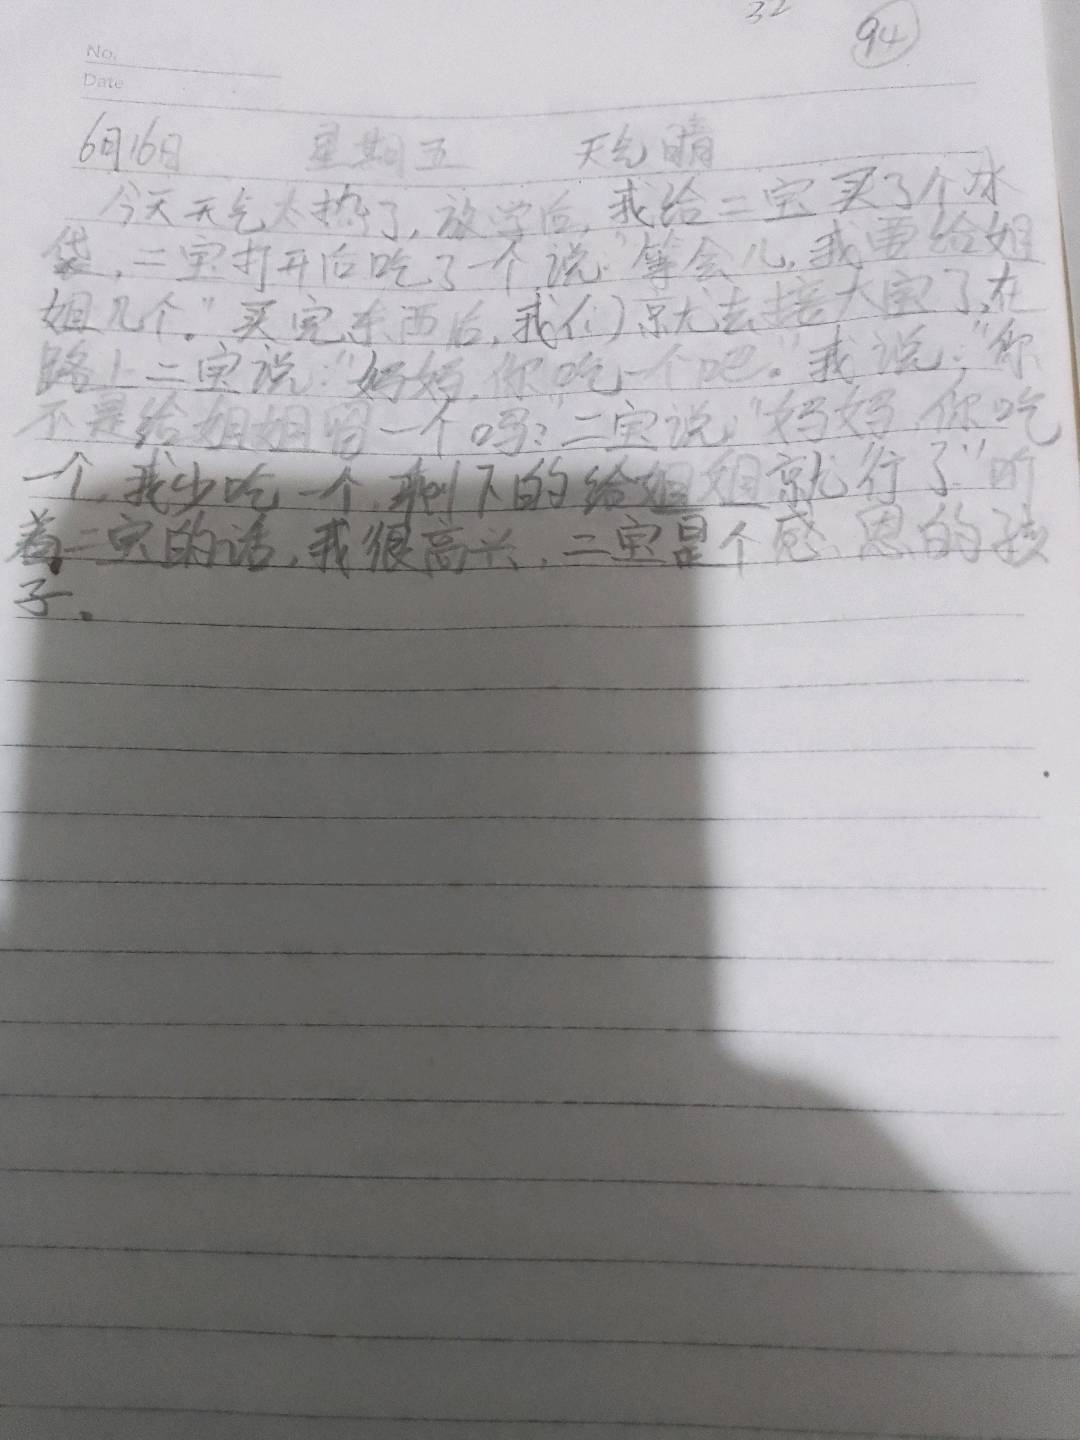 32
94
No.
Date
6月16日 星期五 天气晴
今天天气太热了,放学后,我给二宝买了个冰
袋,二宝打开后吃了一个,说:“等会儿,我要给姐
姐几个。”买完东西后,我们就去接大宝了,在
路上二宝说:“妈妈,你吃一个吧。”我说:“你
不是给姐姐留一个吗?”二宝说:“妈妈,你吃
一个,我少吃一个,剩下的给姐姐就行了”听
着二宝的话,我很高兴,二宝是个感恩的孩
子。